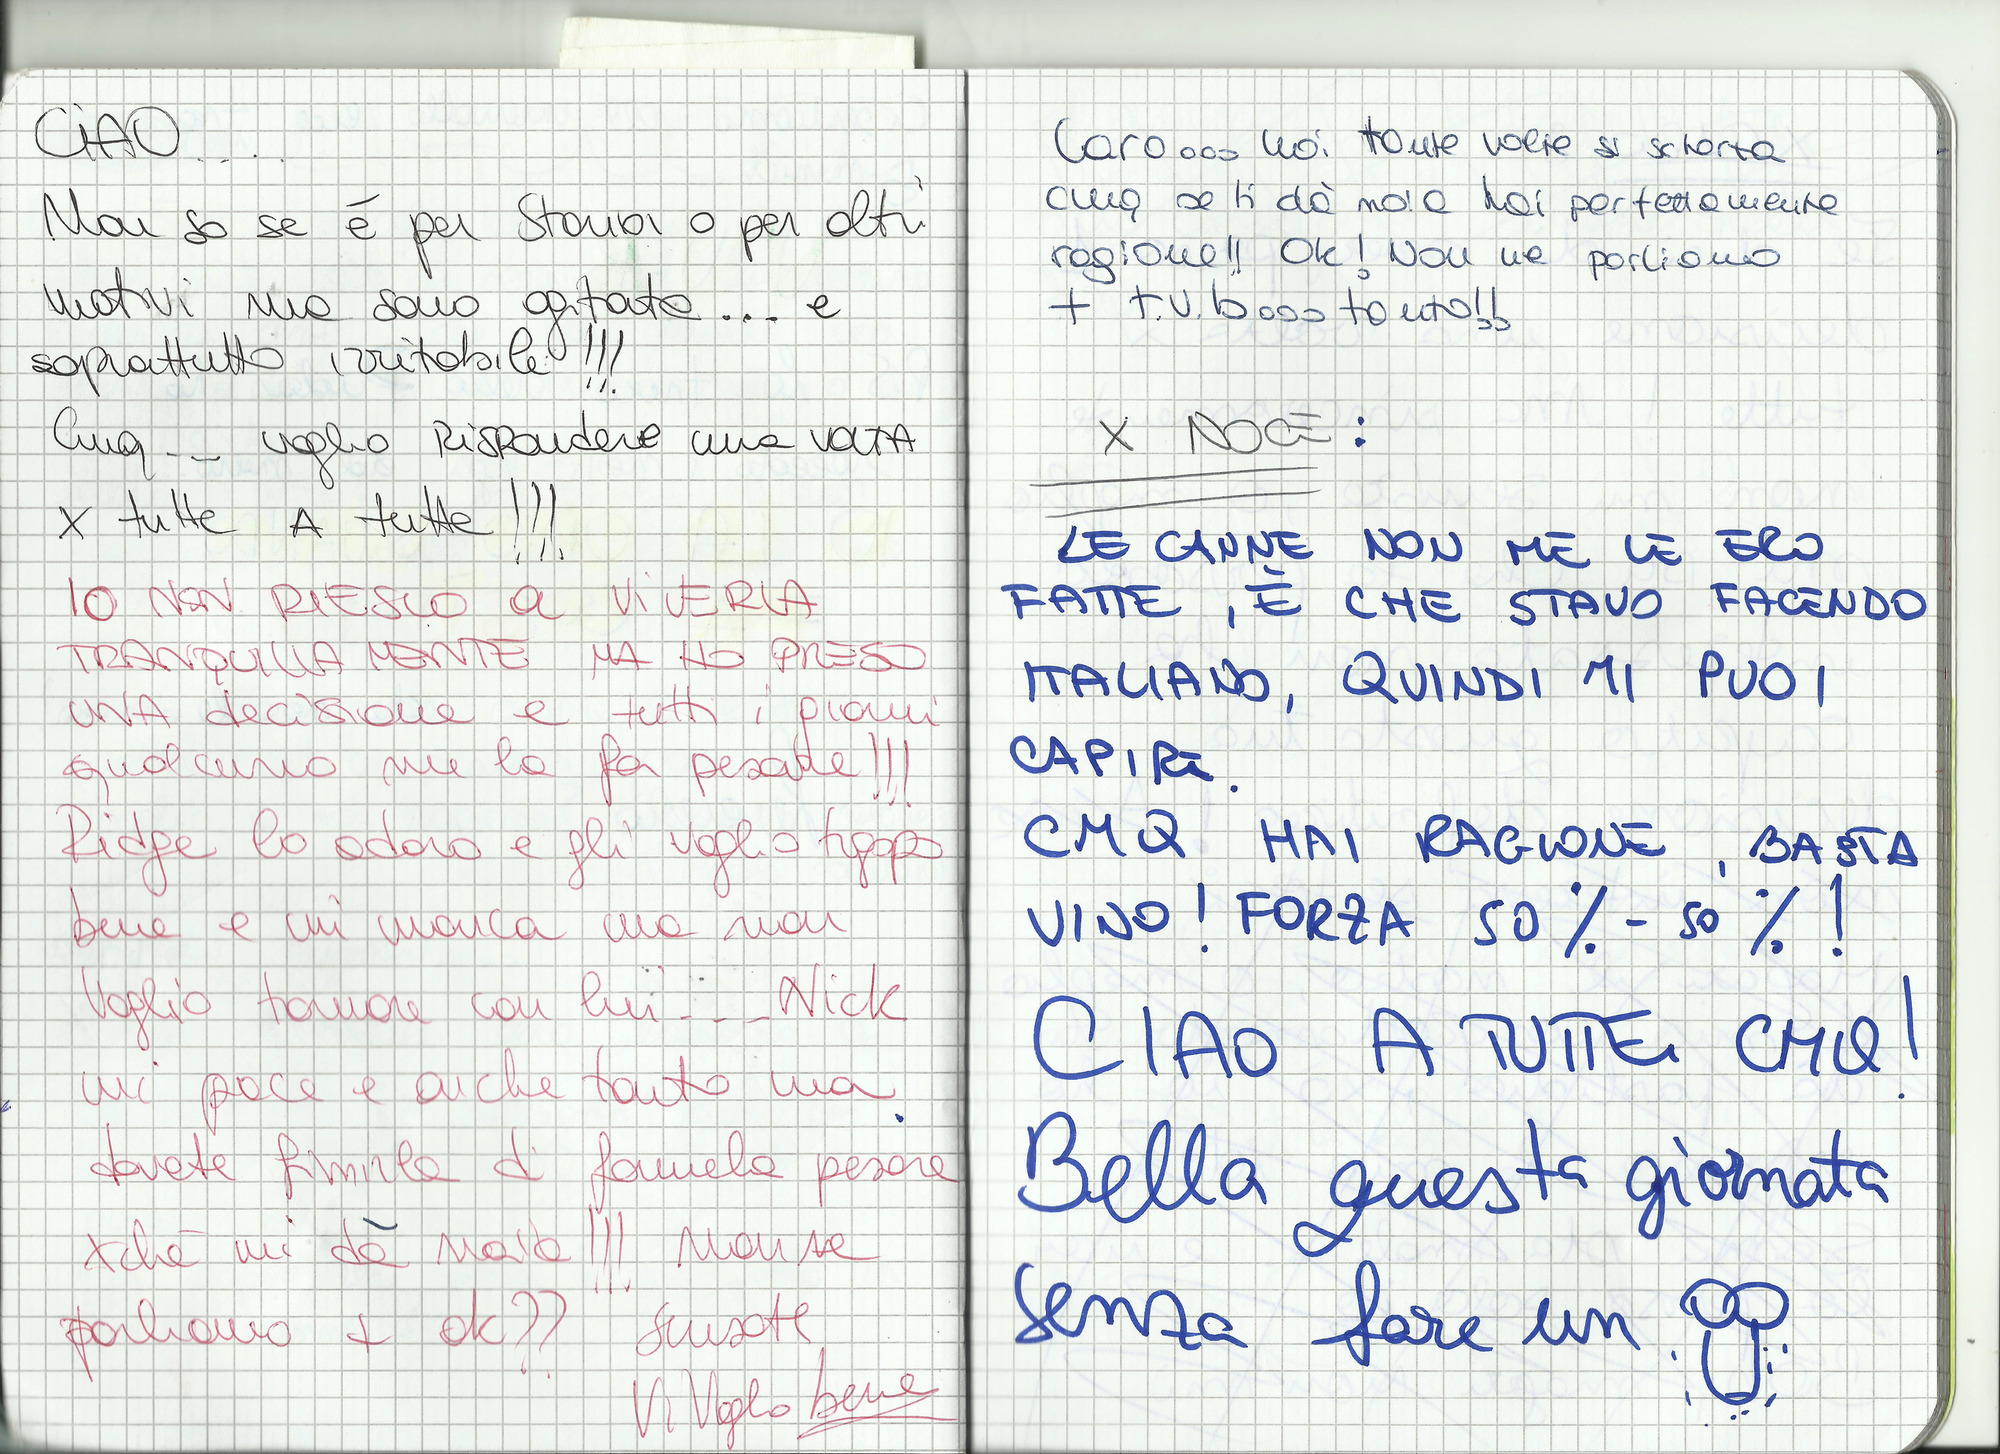 CIAO....
Non so se é per Storia o per altri
motivi ma sono agitata.... e
soprattutto irritabile!!!
Cmq... voglio Rispondere una VOLTA
X tutte A tutte!!!
IO NON RIESCO a VIVERLA
TRANQUILLAMENTE MA HO PRESO
UNA decisione e tutti i giorni
qualcuno me la fa pesare!!!
Ridge lo adoro e gli voglio troppo
bene e mi manca ma non
Voglio tornare con lui.... Nick
mi piace e anche tanto ma
dovete finirla di farmela pesare
xchè mi dà noia!!! Non se
parliamo + ok?? Scusate
Vi Voglio bene
Caro... noi tante volte si scherza
cmq se ti dà noia hai perfettamente
ragione!! Ok! Non ne parliamo
+ T.V.B... tanto!!
X NOCE:
LE CANNE NON ME LE ERO
FATTE, È CHE STAVO FACENDO
ITALIANO, QUINDI MI PUOI
CAPIRE.
CMQ HAI RAGIONE, BASTA
VINO! FORZA 50%-50%!
CIAO A TUTTE CMQ!
Bella questa giornata
senza fare un